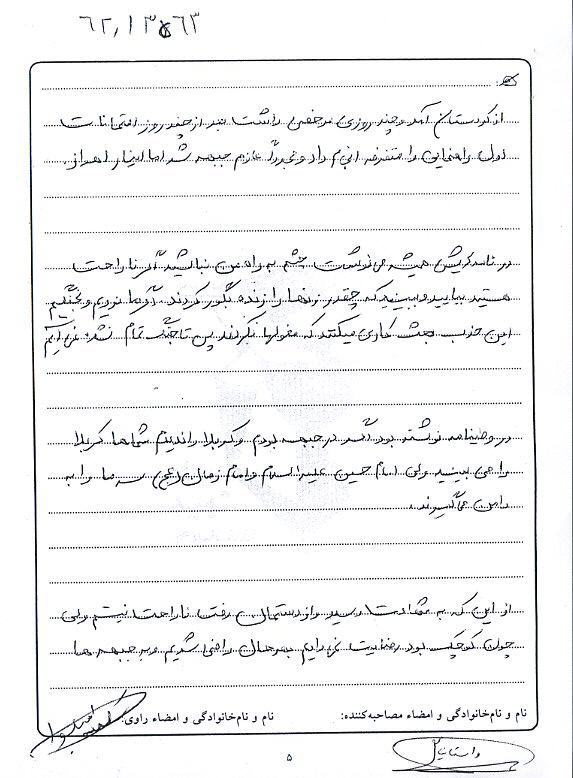 ۶۲,۱۳ ۶۳
از کردستان آمد و چند روزی مرخصی داشت بعد از چند روز امتحانات
اول راهنمایی را متفرقه انجام داد و مجدداً عازم جبهه شد اما اینبار اهواز.
در نامه هایش همیشه می نوشت چشم به راه من نباشید اگر ناراحت
هستید بیایید و ببینید که چقدر زنها را زنده بگور کردند. اگر ما نرویم و نجنگیم
این حزب بعث کاری میکنند که مغولها نکردند پس تا جنگ تمام نشد نمی آیم
در وصیتنامه نوشته بود اگر در جبهه بودم و کربلا را ندیدم شماها کربلا
را می بینید ولی امام حسین علیه السلام و امام زمان (عج) سر ما را به
دامن می گیرند.
از این که به شهادت رسید و از دستمان رفت ناراحت نیستم ولی
چون کوچک بود رضایت نمی دادیم بهرحال راضی شدیم و به جبهه ها
نام و نام‌خانوادگی و امضاء مصاحبه‌کننده: نام و نام‌خانوادگی و امضاء راوی:
۵